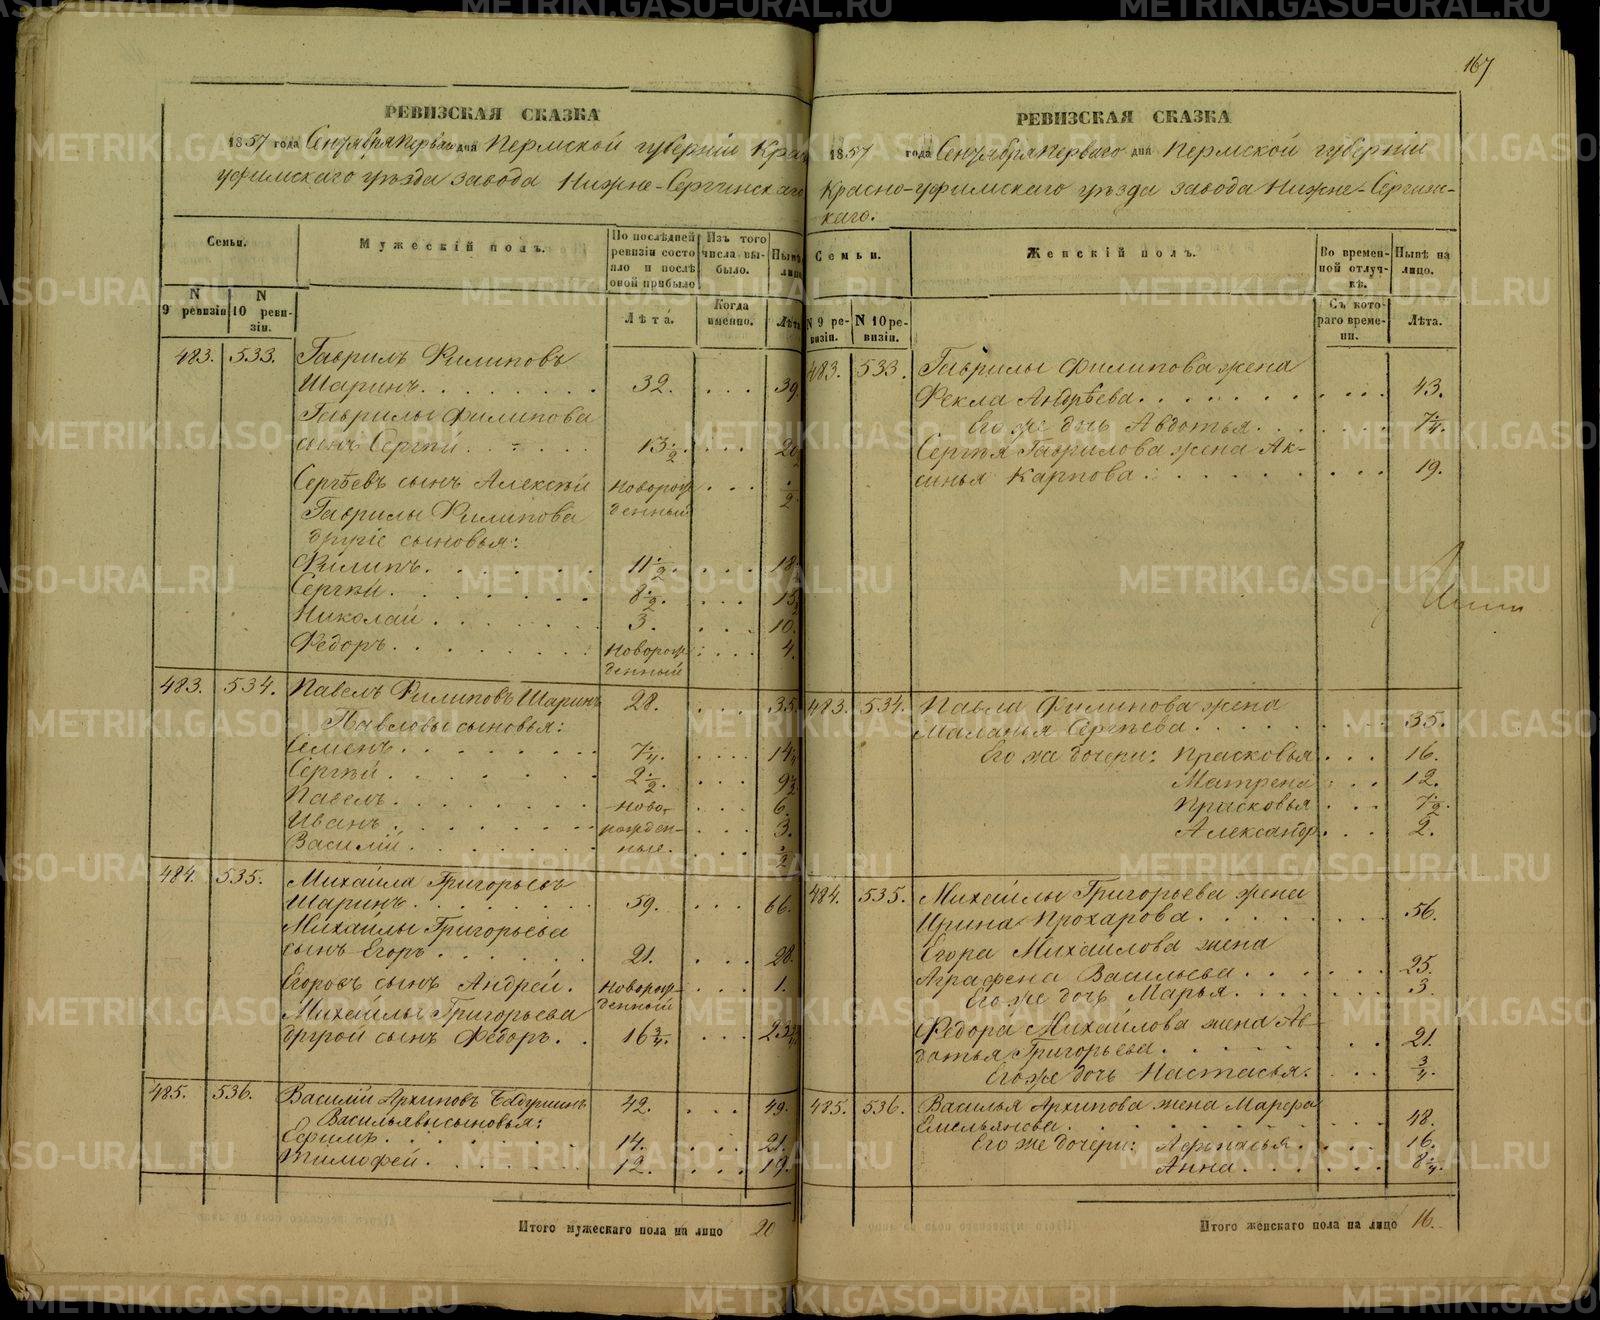 167
РЕВИЗСКАЯ СКАЗКА
1857 года Сентября первого дня Пермской губерніи Крас
уфимскаго уѣзда завода Нижне-Сергинскаго
Семьи.
Мужескій полъ.
По послѣдней ревизіи состояло и послѣ оной прибыло
Изъ того числа выбыло.
Нынѣ на лицо
N 9 ревизіи
N 10 ревизіи.
Лѣта.
Когда именно.
Лѣта
483. 533. Гаврилъ Филиповъ
Шаринъ. 32. 39.
Гаврилы Филипова
сынъ Сергѣй 13 1/2. 20
Сергѣевъ сынъ Алексѣй Новорож- 1/2
Гаврилы Филипова денный
другіе сыновья:
Филипъ. 11 1/2. 18
Сергѣй. 8 1/2. 15
Николай 3. 10.
Федоръ. Новорож- 4.
денный
483. 534. Павелъ Филиповъ Шаринъ 28. 35.
Павловы сыновья:
Семенъ. 7 1/4. 14
Сергѣй. 2 1/2. 9 1/2
Павелъ. Ново- 6.
Иванъ. рожден- 3.
Василій. ные. 1/2
484. 535. Михайла Григорьевъ
Шаринъ. 59. 66.
Михайлы Григорьева
сынъ Егоръ. 21. 28.
Егоровъ сынъ Андрей. Новорож- 1.
Михайлы Григорьева денный
другой сынъ Федоръ. 16 3/4. 23
485. 536. Василій Архиповъ Бабушкинъ 42. 49.
Васильевы сыновья:
Ефимъ. 14. 21.
Тимофей. 12. 19.
Итого мужескаго пола на лицо 20
РЕВИЗСКАЯ СКАЗКА
1857 года Сентября первого дня Пермской губерніи
Красно-уфимскаго уѣзда завода Нижне-Сергин-
скаго.
Семьи.
Женскій полъ.
Во временной отлучкѣ.
Нынѣ на лицо.
N 9 ревизіи.
N 10 ревизіи.
Съ котораго времени.
Лѣта.
483. 533. Гаврилы Филипова жена
Фекла Андрѣева. 43.
Его же дочь Авдотья. 7 1/4.
Сергѣя Гаврилова жена Ак-
синья Карпова. 19.
483. 534. Павла Филипова жена
Маланья Сергѣева. 35.
Его же дочери: Прасковья 16.
Матрена 12.
Прасковья 7 1/2.
Александр. 2.
484. 535. Михайлы Григорьева жена
Ирина Прохарова. 56.
Егора Михайлова жена
Аграфена Васильева. 25.
Его же дочь Марья. 3.
Федора Михайлова жена Ав-
дотья Григорьева. 21.
Его же дочь Настасья. 3/4.
485. 536. Василья Архипова жена Марфа
Емельянова. 48.
Его же дочери: Афонасья. 16.
Анна. 8 1/4.
Итого женскаго пола на лицо 16.
METRIKI.GASO-URAL.RU